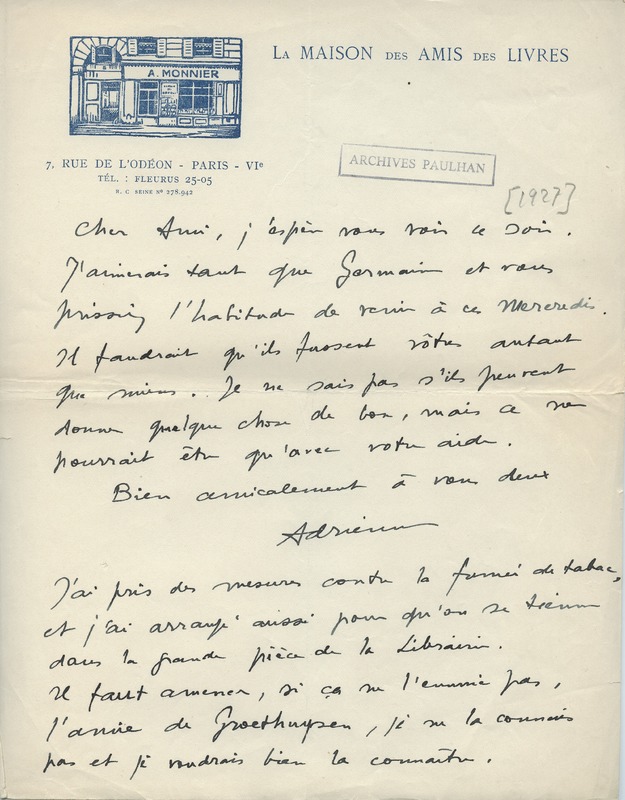 A. MONNIER
LA MAISON DES AMIS DES LIVRES
7, RUE DE L'ODÉON - PARIS - VIe
TÉL. : FLEURUS 25-05
R. C. SEINE Nº 278.942
ARCHIVES PAULHAN
[1927]
Cher Ami, j'espère vous voir ce soir.
J'aimerais tant que Germain et vous
prissiez l'habitude de venir à ces Mercredis.
Il faudrait qu'ils fussent vôtres autant
que miens. Je ne sais pas s'ils peuvent
donner quelque chose de bon, mais ce ne
pourrait être qu'avec votre aide.
Bien amicalement à vous deux
Adrienne
J'ai pris des mesures contre la fumée de tabac,
et j'ai arrangé aussi pour qu'on se tienne
dans la grande pièce de la Librairie.
Il faut amener, si ça ne l'ennuie pas,
l'amie de Groethuysen, je ne la connais
pas et je voudrais bien la connaître.